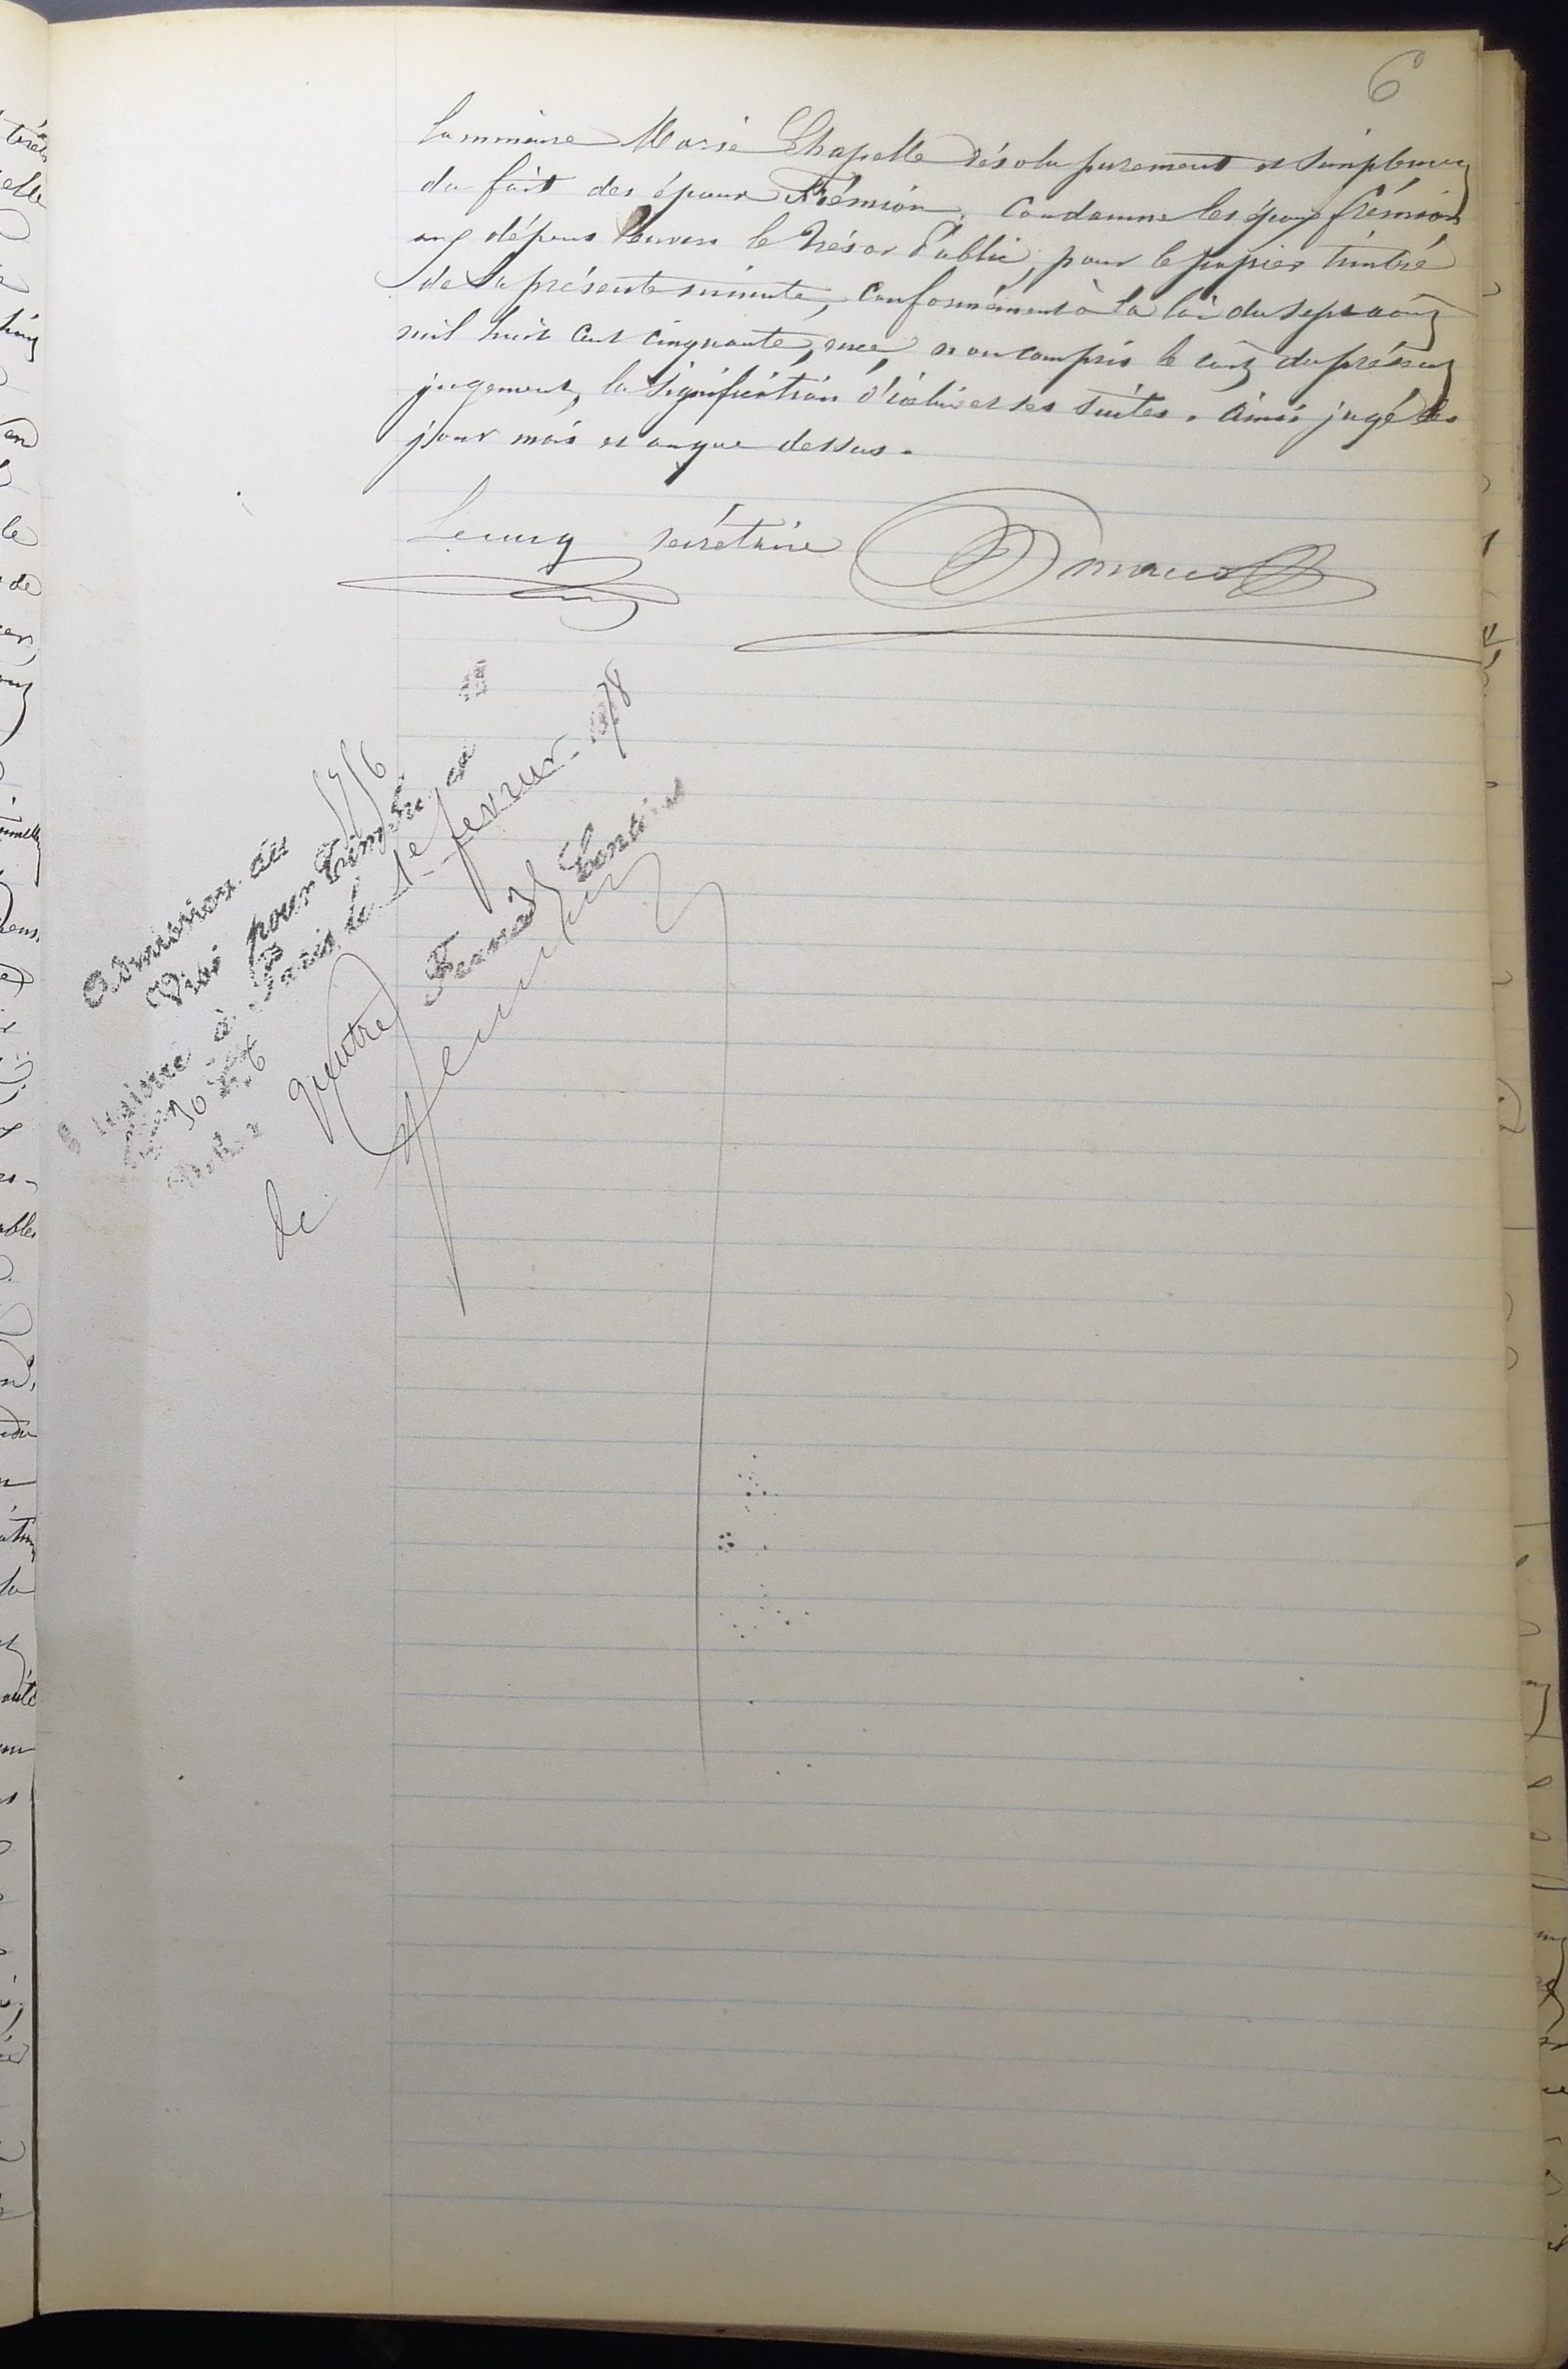 6
la mineure Marie Chapelle résolu purement et simplement
du fait des époux Frémion. Condamne les époux Frémion
aux dépens envers le Trésor Public, pour le papier timbré
de la présente minute, conformément à la loi du sept août
mil huit cent cinquante, non compris le coût du présent
jugement, la signification d'icelui et ses suites. Ainsi jugé les
jour mois et an que dessus.
Lecucq secrétaire
Admission du
Visé pour Timbre en
à Paris le 1e février 1878
de quatre Francs Centimes